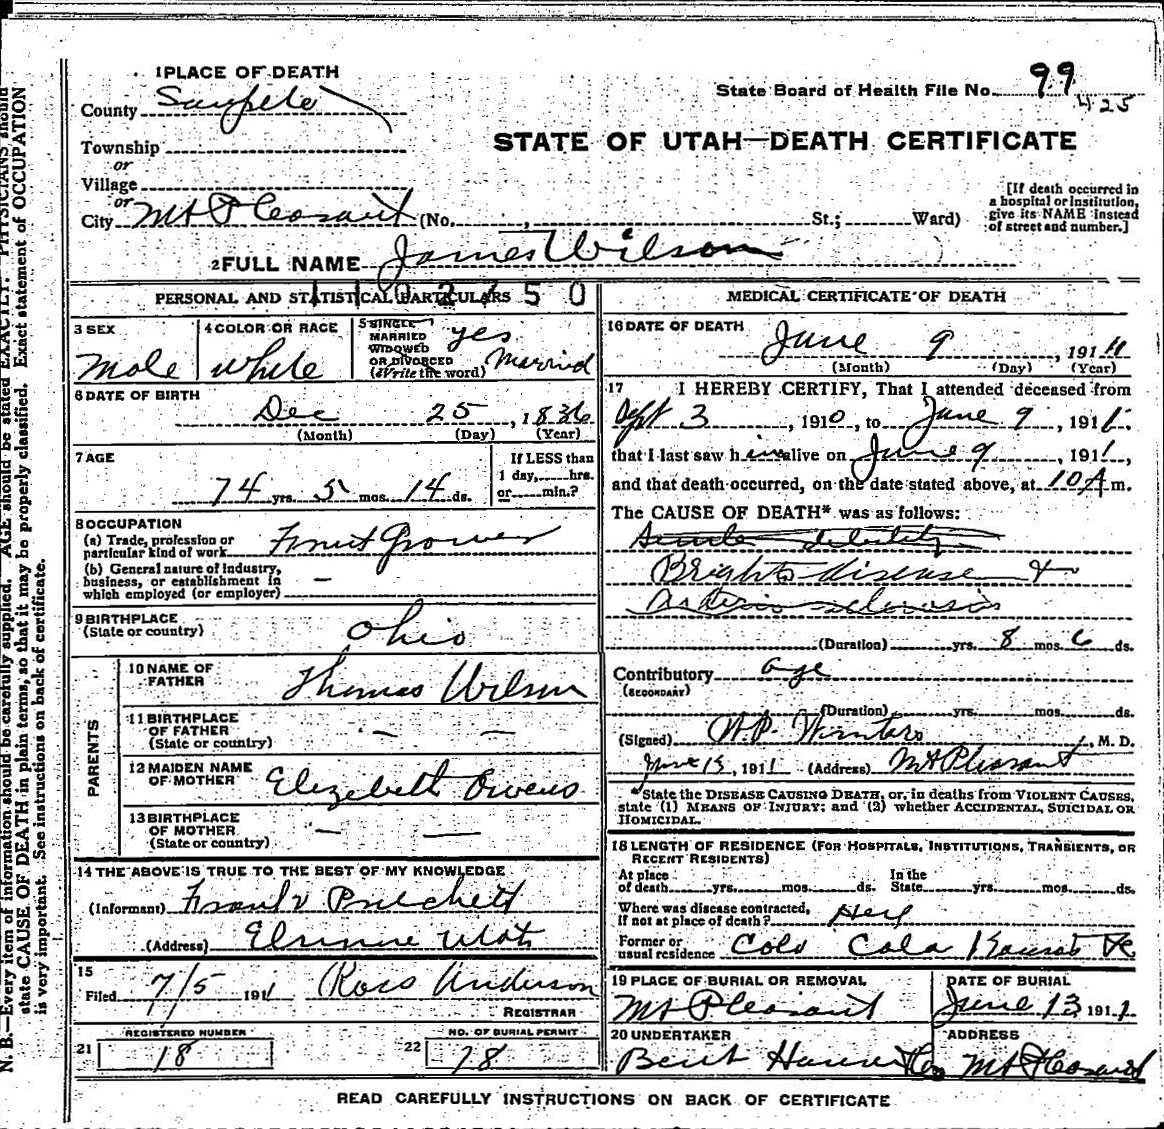 1 PLACE OF DEATH
State Board of Health File No. 99
425
County Sanpete
STATE OF UTAH—DEATH CERTIFICATE
Township
or
Village
or
City Mt Pleasant (No. , St.; Ward)
[If death occurred in a hospital or institution, give its NAME instead of street and number.]
2 FULL NAME James Wilson
PERSONAL AND STATISTICAL PARTICULARS
50
3 SEX
Male
4 COLOR OR RACE
White
5 SINGLE
MARRIED
WIDOWED
OR DIVORCED
(Write the word)
yes
Married
6 DATE OF BIRTH
Dec 25, 1836
(Month) (Day) (Year)
7 AGE
74 yrs. 5 mos. 14 ds.
If LESS than
1 day, hrs.
or min.?
8 OCCUPATION
(a) Trade, profession or
particular kind of work Fruit Grower
(b) General nature of industry,
business, or establishment in
which employed (or employer) —
9 BIRTHPLACE
(State or country) Ohio
PARENTS
10 NAME OF
FATHER Thomas Wilson
11 BIRTHPLACE
OF FATHER
(State or country) — —
12 MAIDEN NAME
OF MOTHER Elizebeth Owens
13 BIRTHPLACE
OF MOTHER
(State or country) — —
14 THE ABOVE IS TRUE TO THE BEST OF MY KNOWLEDGE
(Informant) Pritchett
(Address) Utah
15
Filed 7/5 1911 Ross Anderson
REGISTRAR
REGISTERED NUMBER
21 18
NO. OF BURIAL PERMIT
22 18
MEDICAL CERTIFICATE OF DEATH
16 DATE OF DEATH
June 9, 1911
(Month) (Day) (Year)
17 I HEREBY CERTIFY, That I attended deceased from
Sept 3, 1910, to June 9, 1911.
that I last saw him alive on June 9, 1911,
and that death occurred, on the date stated above, at 10 A m.
The CAUSE OF DEATH* was as follows:
Senile debility
Brights disease &
Arterio sclerosis
(Duration) yrs. 8 mos. 6 ds.
Contributory age
(SECONDARY)
(Duration) yrs. mos. ds.
(Signed) W.P. Winters, M. D.
June 13, 1911 (Address) Mt Pleasant
*State the DISEASE CAUSING DEATH, or, in deaths from VIOLENT CAUSES,
state (1) MEANS OF INJURY; and (2) whether ACCIDENTAL, SUICIDAL OR
HOMICIDAL.
18 LENGTH OF RESIDENCE (FOR HOSPITALS, INSTITUTIONS, TRANSIENTS, OR
RECENT RESIDENTS)
At place
of death yrs. mos. ds.
In the
State yrs. mos. ds.
Where was disease contracted,
if not at place of death?
Former or
usual residence Colo
19 PLACE OF BURIAL OR REMOVAL
Mt Pleasant
DATE OF BURIAL
June 13 1911.
20 UNDERTAKER
ADDRESS
Mt Pleasant
READ CAREFULLY INSTRUCTIONS ON BACK OF CERTIFICATE
N. B.—Every item of information should be carefully supplied. AGE should be stated EXACTLY. PHYSICIANS should
state CAUSE OF DEATH in plain terms, so that it may be properly classified. Exact statement of OCCUPATION
is very important. See instructions on back of certificate.